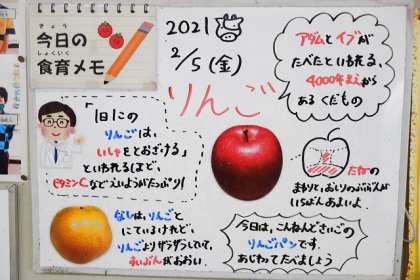 きょう
今日の
しょくいく
食育メモ
2021
2/5(金)
りんご
アダムとイブが
たべたといわれる、
4000年まえから
あるくだもの
「1日1この
りんごは、
いしゃをとおざける」
といわれるほど、
ビタミンCなどえいようがたっぷり!
たねの
まわりと、おしりのぶぶんが
いちばんあまいよ。
なしは、りんごと
にているけれど、
りんごよりザラザラしていて、
すいぶんがおおい。
今日は、こんねんどさいごの
りんごパンです。
あじわってたべましょう